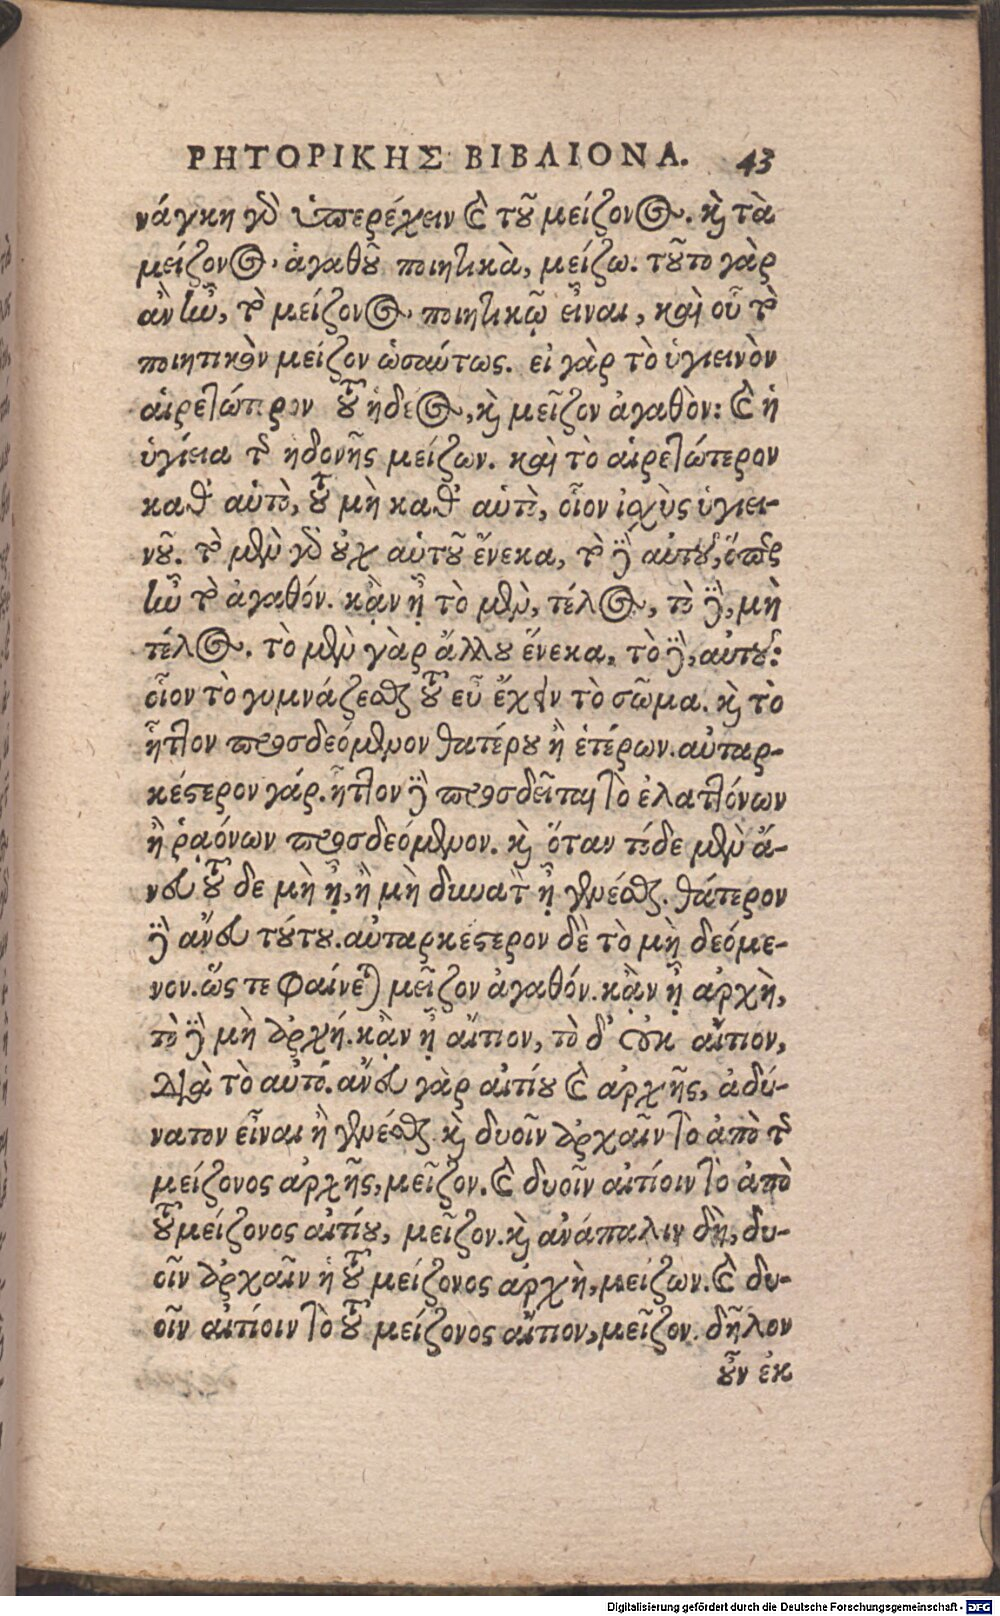 ΡΗΤΟΡΙΚΗΣ ΒΙΒΛΙΟΝ Α. 43
νάγκη γὸ ὑπερέχειν καὶ τοῦ μείζονος. καὶ τὰ
μείζονος ἀγαθοῦ ποιητικὰ, μείζω. τοῦτο γὰρ
ἂν ἦν, τὸ μείζονος ποιητικῷ εἶναι, καὶ οὗ τὸ
ποιητικὸν μεῖζον ὡσαύτως. εἰ γὰρ τὸ ὑγιεινὸν
αἱρετώτερον τοῦ ἡδέος, καὶ μεῖζον ἀγαθὸν: καὶ ἡ
ὑγίεια τῆς ἡδονῆς μείζων. καὶ τὸ αἱρετώτερον
καθ' αὑτὸ, τοῦ μὴ καθ' αὑτὸ, οἷον ἰσχὺς ὑγιει-
νοῦ. τὸ μὲν γὸ οὐχ αὑτοῦ ἕνεκα, τὸ δὲ αὑτοῦ, ὅπερ
ἦν τὸ ἀγαθόν. κἂν ᾖ τὸ μὲν, τέλος, τὸ δὲ, μὴ
τέλος. τὸ μὲν γὰρ ἄλλου ἕνεκα, τὸ δὲ, αὑτοῦ:
οἷον τὸ γυμνάζεσθαι τοῦ εὖ ἔχειν τὸ σῶμα. καὶ τὸ
ἧττον προσδεόμενον θατέρου ἢ ἑτέρων. αὐταρ-
κέστερον γάρ. ἧττον δὲ προσδεῖται τὸ ἐλαττόνων
ἢ ῥαόνων προσδεόμενον. καὶ ὅταν τόδε μὲν ἄ-
νευ τοῦ δε μὴ ᾖ, ἢ μὴ δυνατὸν ᾖ γενέσθαι. θάτερον
δὲ ἄνευ τούτου. αὐταρκέστερον δὲ τὸ μὴ δεόμε-
νον. ὥς τε φαίνεται μεῖζον ἀγαθόν. κἂν ᾖ ἀρχὴ,
τὸ δὲ μὴ ἀρχή. κἂν ᾖ αἴτιον, τὸ δ' οὐκ αἴτιον,
διὰ τὸ αὐτό. ἄνευ γὰρ αἰτίου καὶ ἀρχῆς, ἀδύ-
νατον εἶναι ἢ γενέσθαι. καὶ δυοῖν ἀρχαῖν τὸ ἀπὸ τῆς
μείζονος ἀρχῆς, μεῖζον. καὶ δυοῖν αἰτίοιν τὸ ἀπὸ
τοῦ μείζονος αἰτίου, μεῖζον. καὶ ἀνάπαλιν δὴ, δυ-
οῖν ἀρχαῖν ἡ τοῦ μείζονος ἀρχὴ, μείζων. καὶ δυ-
οῖν αἰτίοιν τὸ τοῦ μείζονος αἴτιον, μεῖζον. δῆλον
οὖν ἐκ
Digitalisierung gefördert durch die Deutsche Forschungsgemeinschaft - DFG